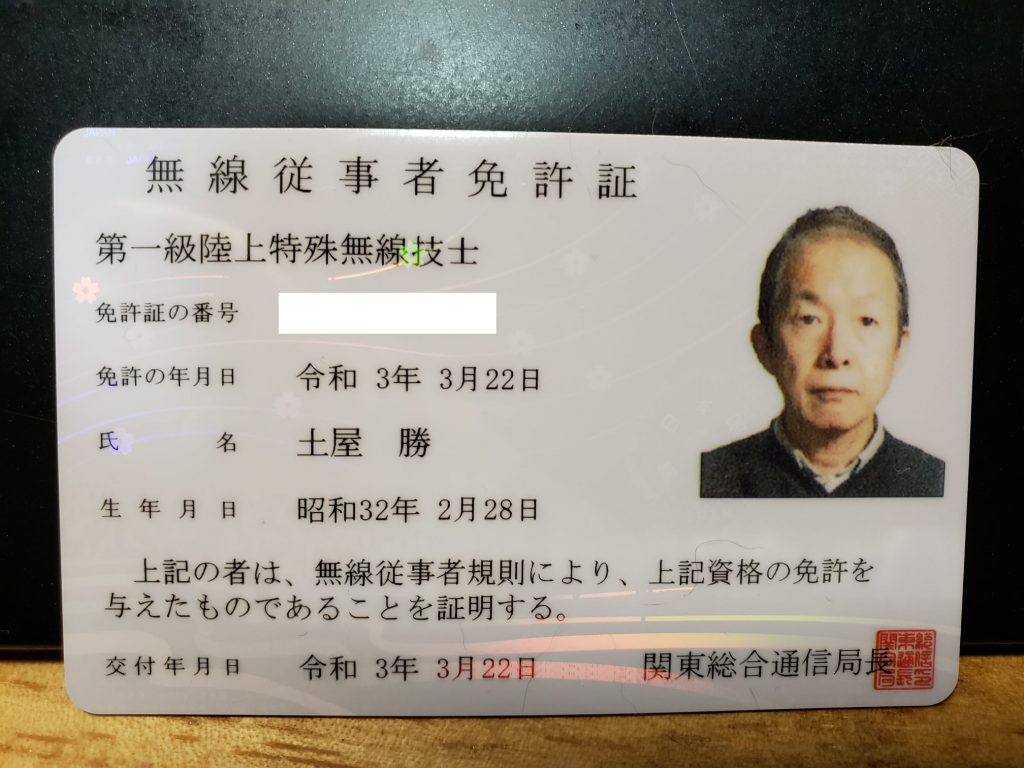 無線従事者免許証
第一級陸上特殊無線技士
免許証の番号
免許の年月日 令和 3年 3月22日
氏名 土屋 勝
生年月日 昭和32年 2月28日
上記の者は、無線従事者規則により、上記資格の免許を
与えたものであることを証明する。
交付年月日 令和 3年 3月22日 関東総合通信局長